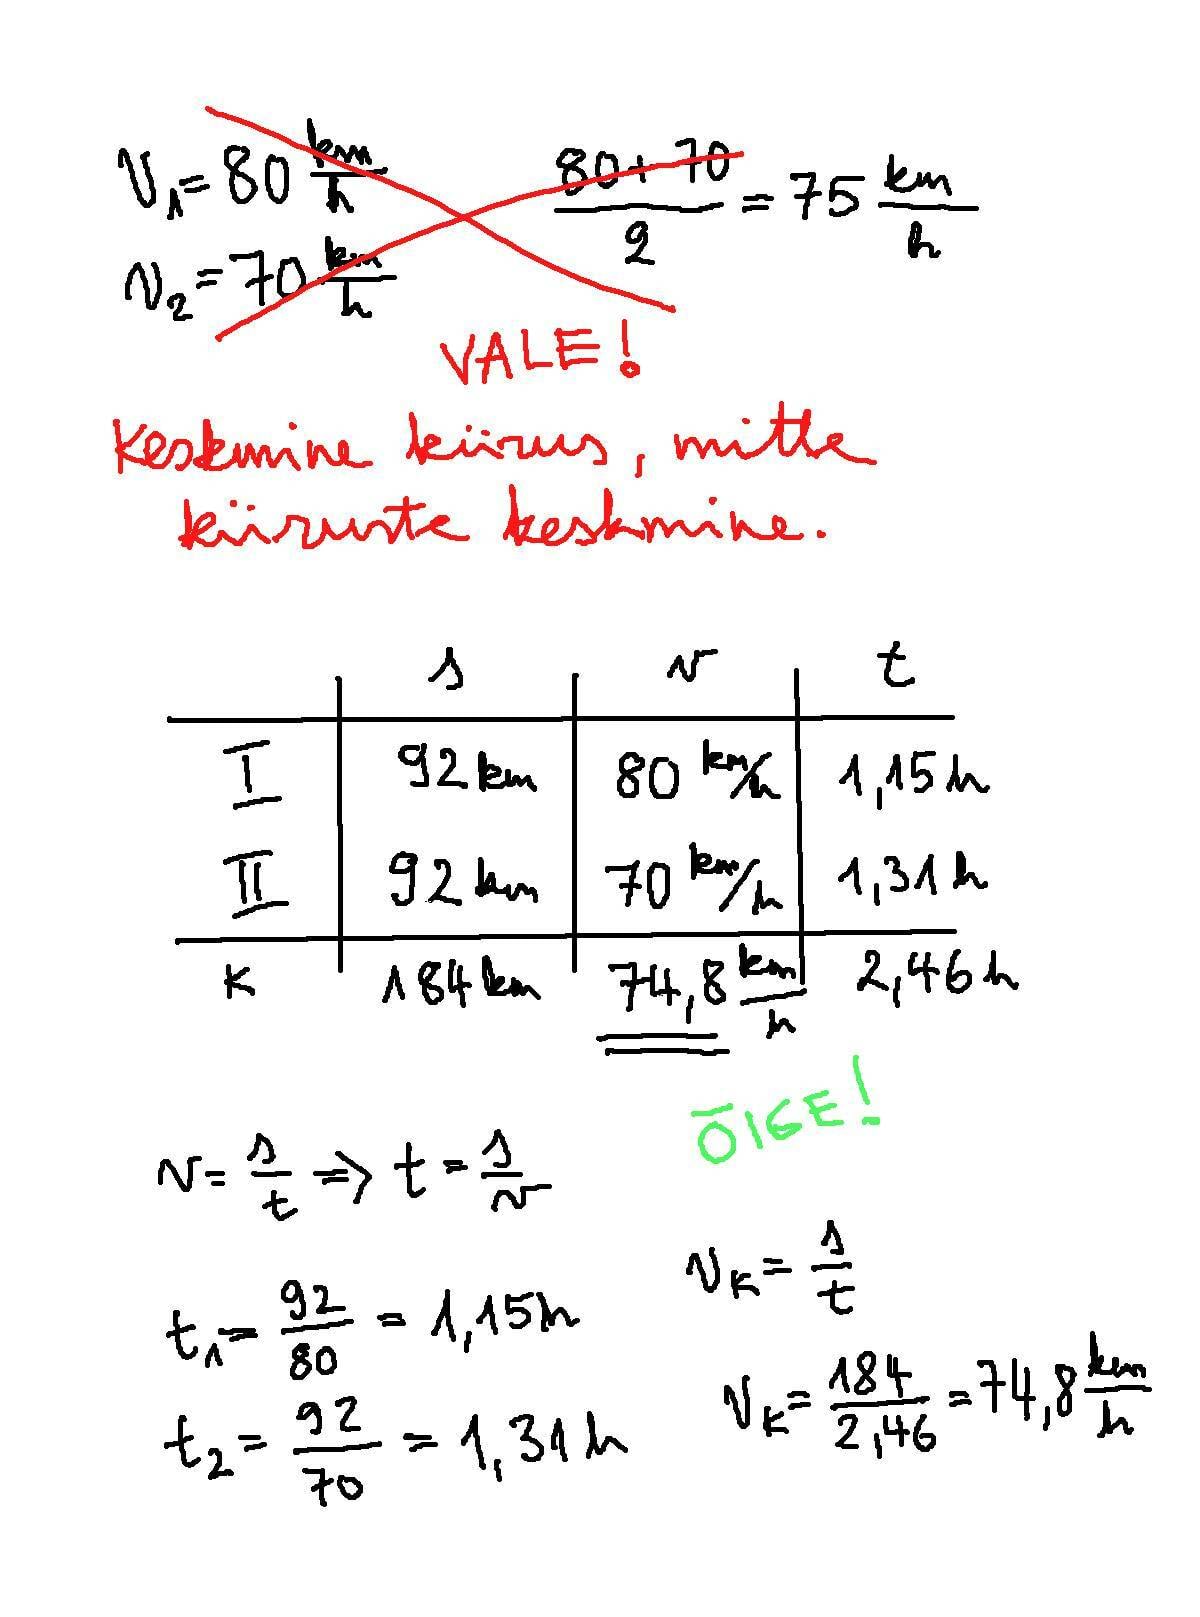 v₁ = 80 km/h (80 + 70)/2 = 75 km/h
v₂ = 70 km/h
VALE!
Keskmine kiirus, mitte
kiiruste keskmine.
s v t
I 92 km 80 km/h 1,15 h
II 92 km 70 km/h 1,31 h
K 184 km 74,8 km/h 2,46 h
ÕIGE!
v = s/t ⇒ t = s/v
v_K = s/t
t₁ = 92/80 = 1,15 h
v_K = 184/2,46 = 74,8 km/h
t₂ = 92/70 = 1,31 h